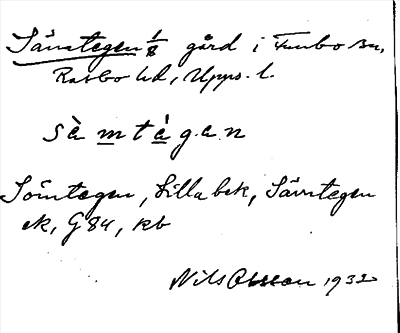 Sävstegen 1/8 gård i Funbo sn,
Rasbo hd, Upps. l.
sè m t è g e n
Sömtegen, Lilla bek, Sävstegen
ek, G 84, kb
Nils Olsson 1932